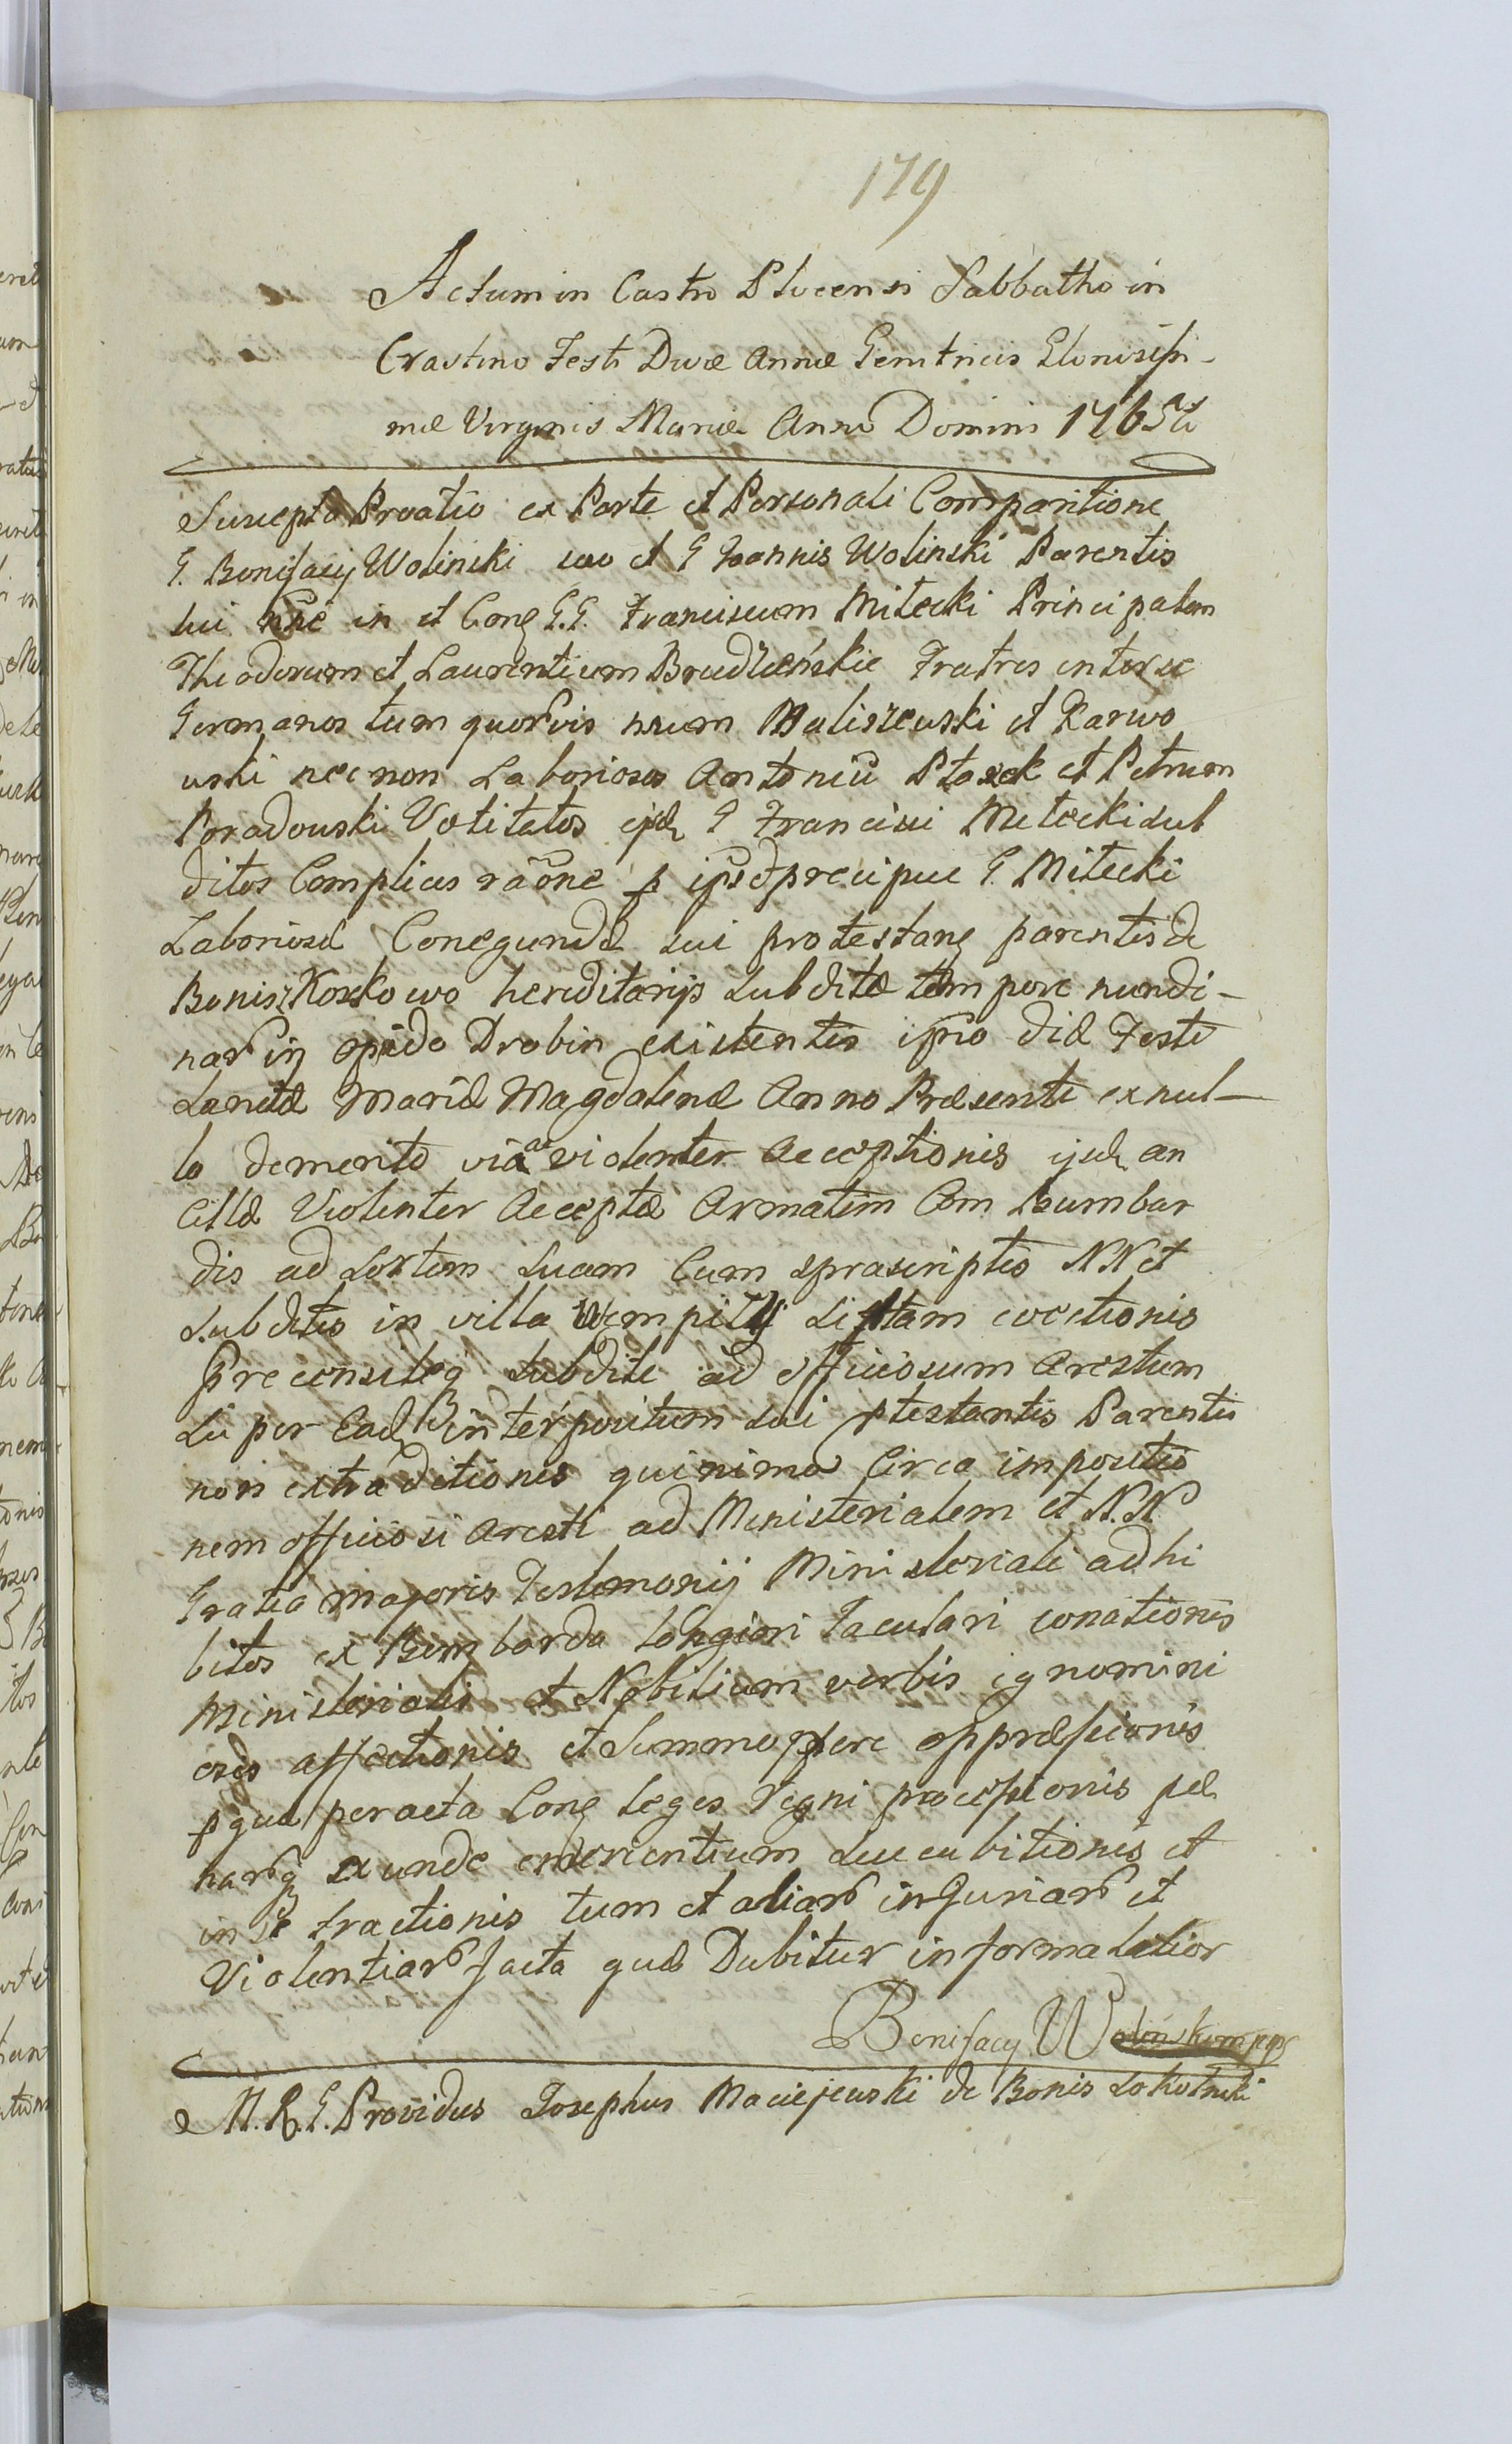 179
Actum in Castro Plocensi Sabbatho in
Crastino Festi Divæ Annæ Genitricis Gloriosissi-
mæ Virginis Mariæ Anno Domini 1765to
Suscepta Prvatio ex Parte et Personali Comparitione
G. Bonifacij Wolinski suo et G Joannis Wolinski Parentis
sui nõie in et Conq G.G. Franciscum Mitecki Principalem
Theodorum et Laurentium Brudzeńskie Fratres inter se
Germanos tum quosvis nrum Maliszewski et Karwo
wski nec non Laboriosos Antoniũ Ptaszek et Petrum
Poradowski Votitatos ejd G Francisci Mitecki sub
ditos Complices rãone p ipsd precipue G. Mitecki
Laboriosæ Conegundæ sui protestanq parentis de
Bonis Koskowo hereditarijs subditæ tempore nundi-
nar in opido Drobin existentis ipso die Festi
Sanctæ Mariæ Magdalenæ Anno Præsenti ex nul-
lo demerito via violenter acceptionis ejud an
cillæ Violenter Acceptæ Armatim Com Bumbar
dis ad sortem suam Cum sprascriptis NN et
subditis in villa Wempily sistam coectionis
preconsiteq subdite ad officiosum arestum
su per Ead interpositum sui ptestantis Parentis
non extraditionis quinimo Circa impositio
nem officiosi aresti ad Ministerialem et N.N.
Gratia majoris Testimonij Ministeriali adhi
bitos ex Bombarda longiori Jaculari conationis
Ministerialis et Nobilium verbis ignomini
osis affectionis et Summopere oppræssionis
pqua peracta Conq leges Regni præceptionis pæ
narq exunde emerentium succubitionis et
in se tractionis tum et aliar injuriar et
Violentiar facta quæ Dabitur in forma latior
Bonifacy Wolinski mpp
M.R.G. Providus Josephus Maciejewski de Bonis Sokolniki